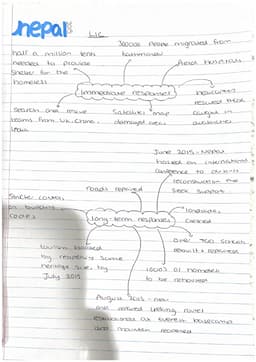 nepal
LIC
300000 people migrated from
Kathmandu
half a million tents
needed to provide
shelter for the
homeless
Field hospitals
immediate responses
helicopters
rescued those
caught in
avalanches
search and rescue
teams from UK, China,
India
Satellites map
damaged area
June 2015 - Nepal
hosted an international
conference to
reconstruction and
seek support
roads repaired
on building
codes
long-term responses
landslides
cleared
over 700 schools
rebuilt + repaired
1000s of homeless
to be rehoused
tourism boosted
by reopening some
heritage sites by
July 2015
August 2015 - new
established at Everest basecamp
and mountain reopened